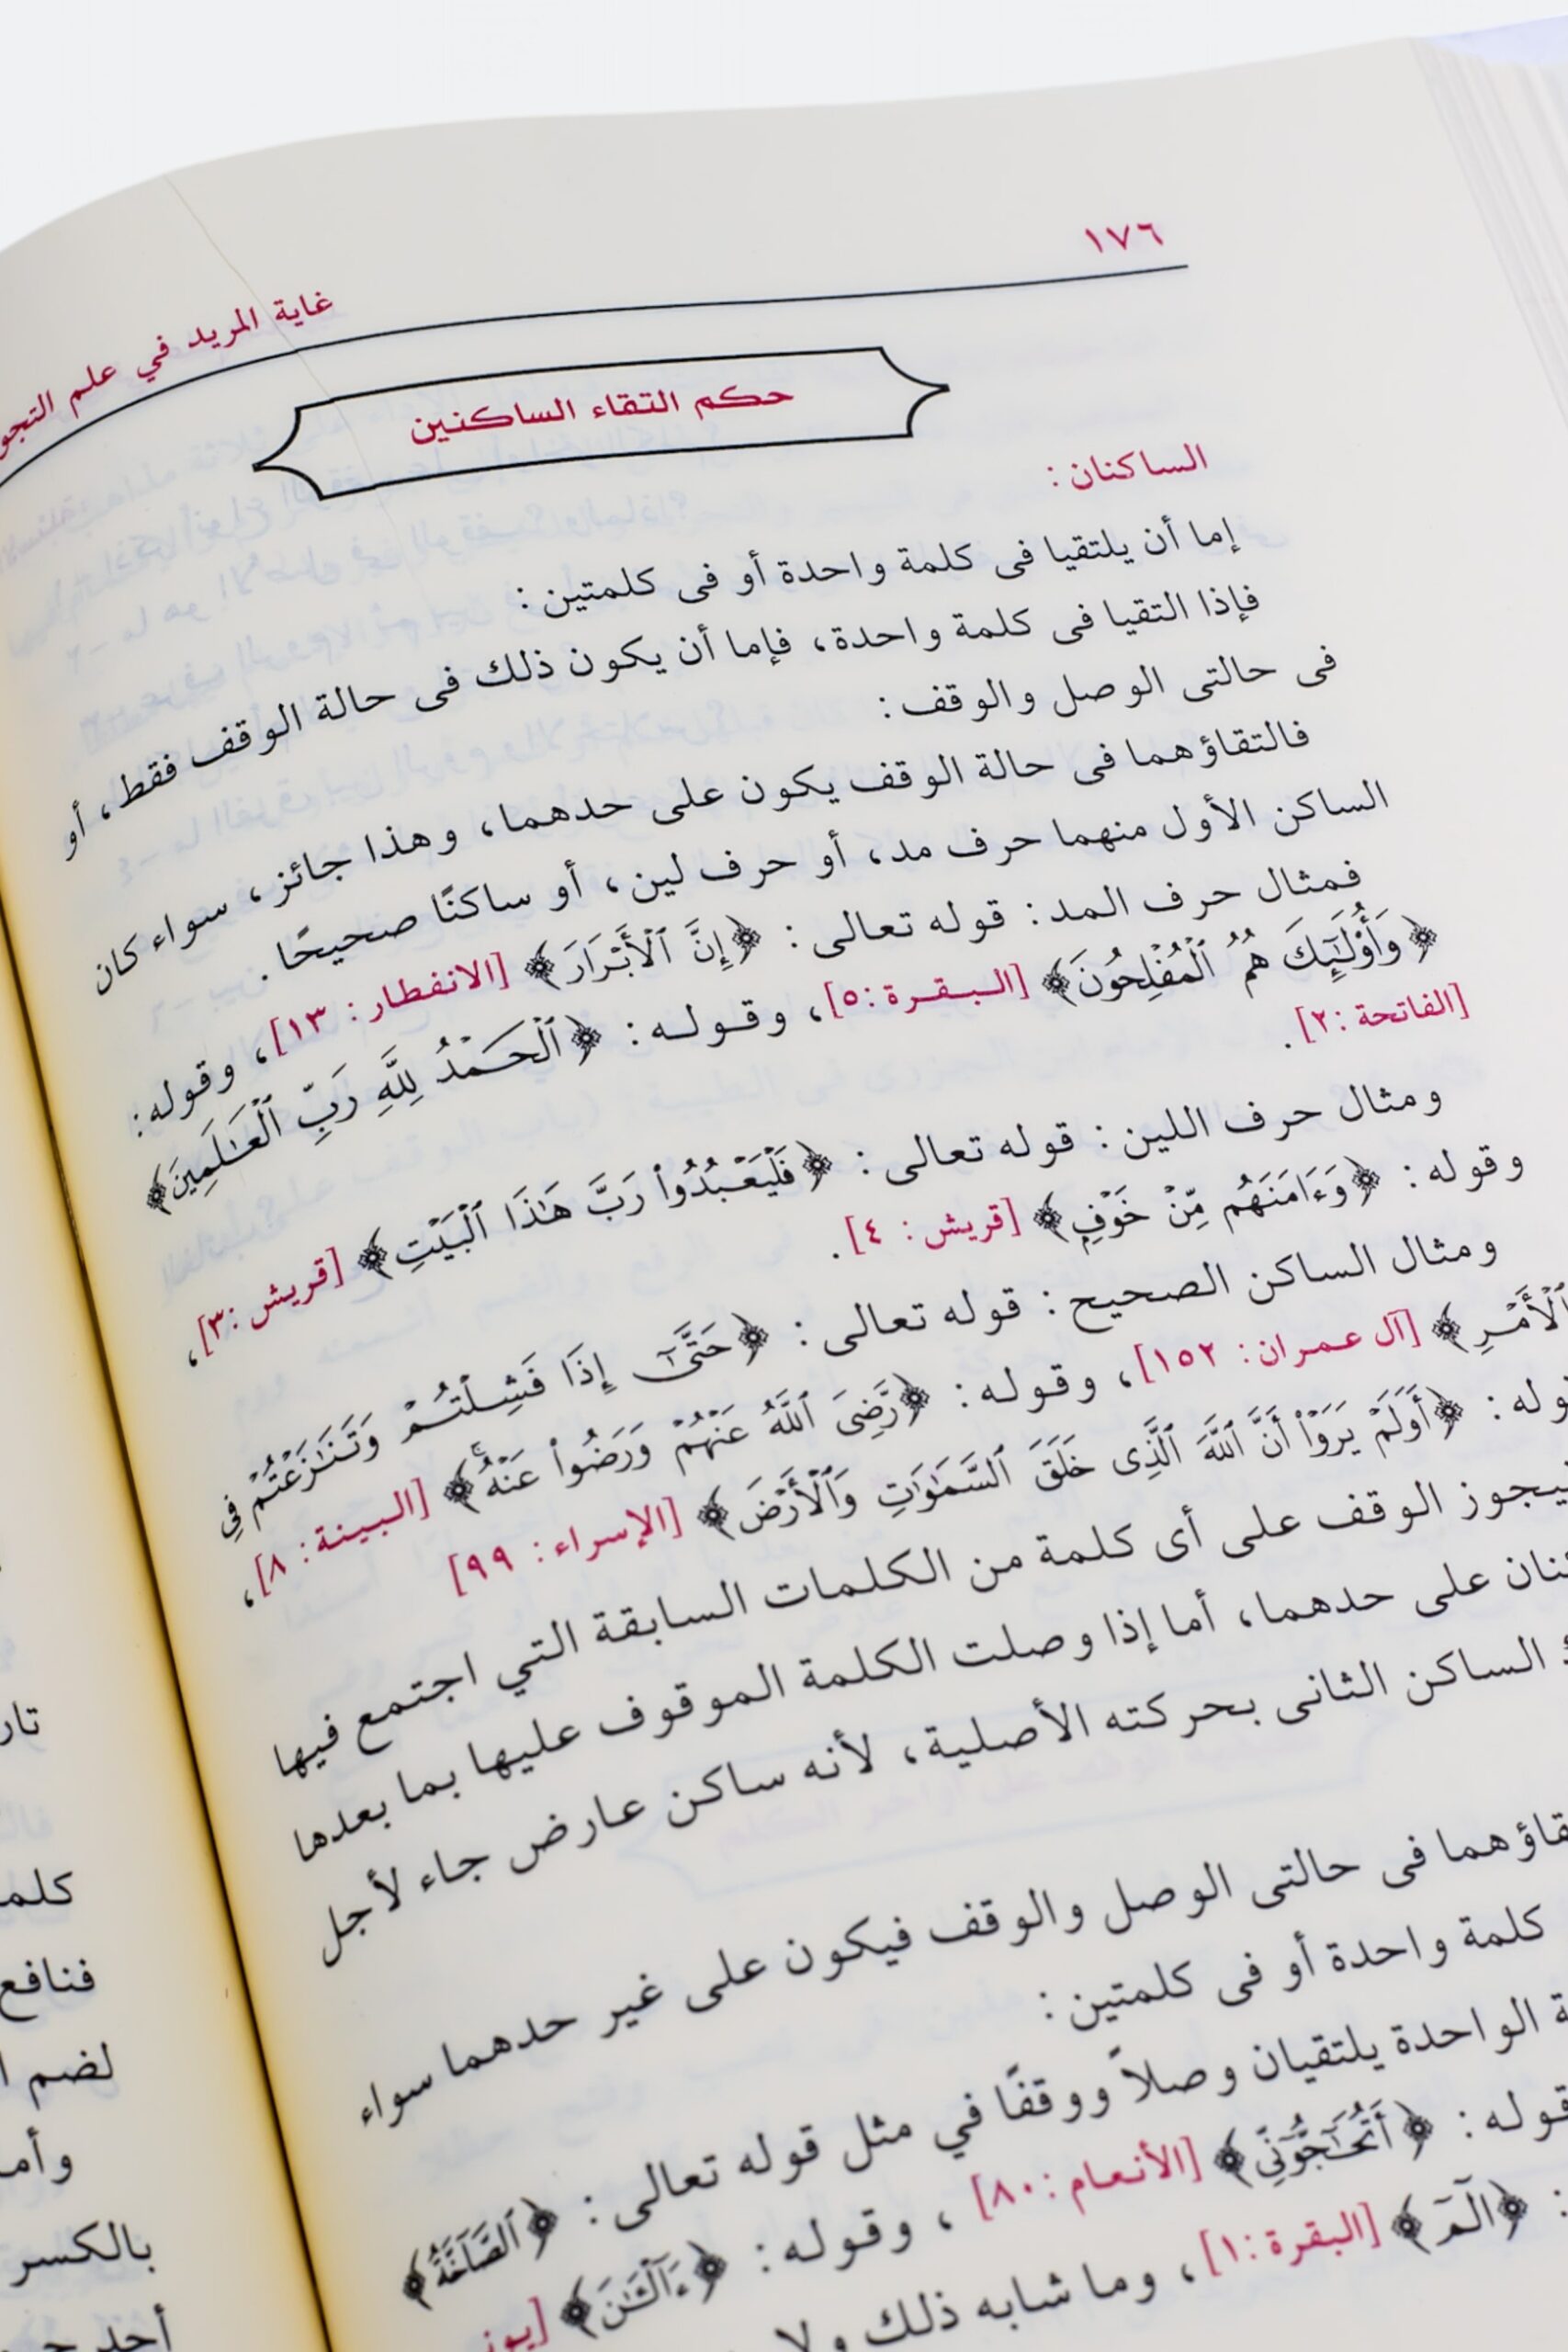 ١٧٦
غاية المريد في علم
حكم التقاء الساكنين
الساكنان :
إما أن يلتقيا فى كلمة واحدة أو فى كلمتين :
فإذا التقيا فى كلمة واحدة، فإما أن يكون ذلك فى حالة الوقف فقط، أو
فى حالتى الوصل والوقف :
فالتقاؤهما فى حالة الوقف يكون على حدهما، وهذا جائز، سواء كان
الساكن الأول منهما حرف مد، أو حرف لين، أو ساكنًا صحيحًا .
فمثال حرف المد : قوله تعالى : ﴿إِنَّ ٱلْأَبْرَارَ﴾ [الانفطار : ١٣]، وقوله:
﴿وَأُوْلَٰٓئِكَ هُمُ ٱلْمُفْلِحُونَ﴾ [البقرة :٥]، وقوله : ﴿ٱلْحَمْدُ لِلَّهِ رَبِّ ٱلْعَٰلَمِينَ﴾
[الفاتحة :٢] .
ومثال حرف اللين : قوله تعالى : ﴿فَلْيَعْبُدُوا۟ رَبَّ هَٰذَا ٱلْبَيْتِ﴾ [قريش :٣]،
وقوله : ﴿وَءَامَنَهُم مِّنْ خَوْفٍۭ﴾ [قريش : ٤] .
ومثال الساكن الصحيح : قوله تعالى : ﴿حَتَّىٰٓ إِذَا فَشِلْتُمْ وَتَنَٰزَعْتُمْ فِى
ٱلْأَمْرِ﴾ [آل عمران : ١٥٢]، وقوله : ﴿رَّضِىَ ٱللَّهُ عَنْهُمْ وَرَضُوا۟ عَنْهُ ۚ﴾ [البينة : ٨]،
﴿أَوَلَمْ يَرَوْا۟ أَنَّ ٱللَّهَ ٱلَّذِى خَلَقَ ٱلسَّمَٰوَٰتِ وَٱلْأَرْضَ﴾ [الإسراء : ٩٩]
الوقف على أى كلمة من الكلمات السابقة التي اجتمع فيها
على حدهما، أما إذا وصلت الكلمة الموقوف عليها بما بعدها
الساكن الثانى بحركته الأصلية، لأنه ساكن عارض جاء لأجل
فى حالتى الوصل والوقف فيكون على غير حدهما سواء
كلمة واحدة أو فى كلمتين :
الواحدة يلتقيان وصلاً ووقفًا في مثل قوله تعالى : ﴿ٱلصَّآخَّةُ﴾
﴿أَتُحَٰٓجُّوٓنِّى﴾ [الأنعام : ٨٠] ، وقوله : ﴿ءَآلْـَٰٔنَ﴾
﴿الٓمٓ﴾ [البقرة :١]، وما شابه ذلك ولا
كلم
فنافع
لضم
وأم
بالكسر
أحد